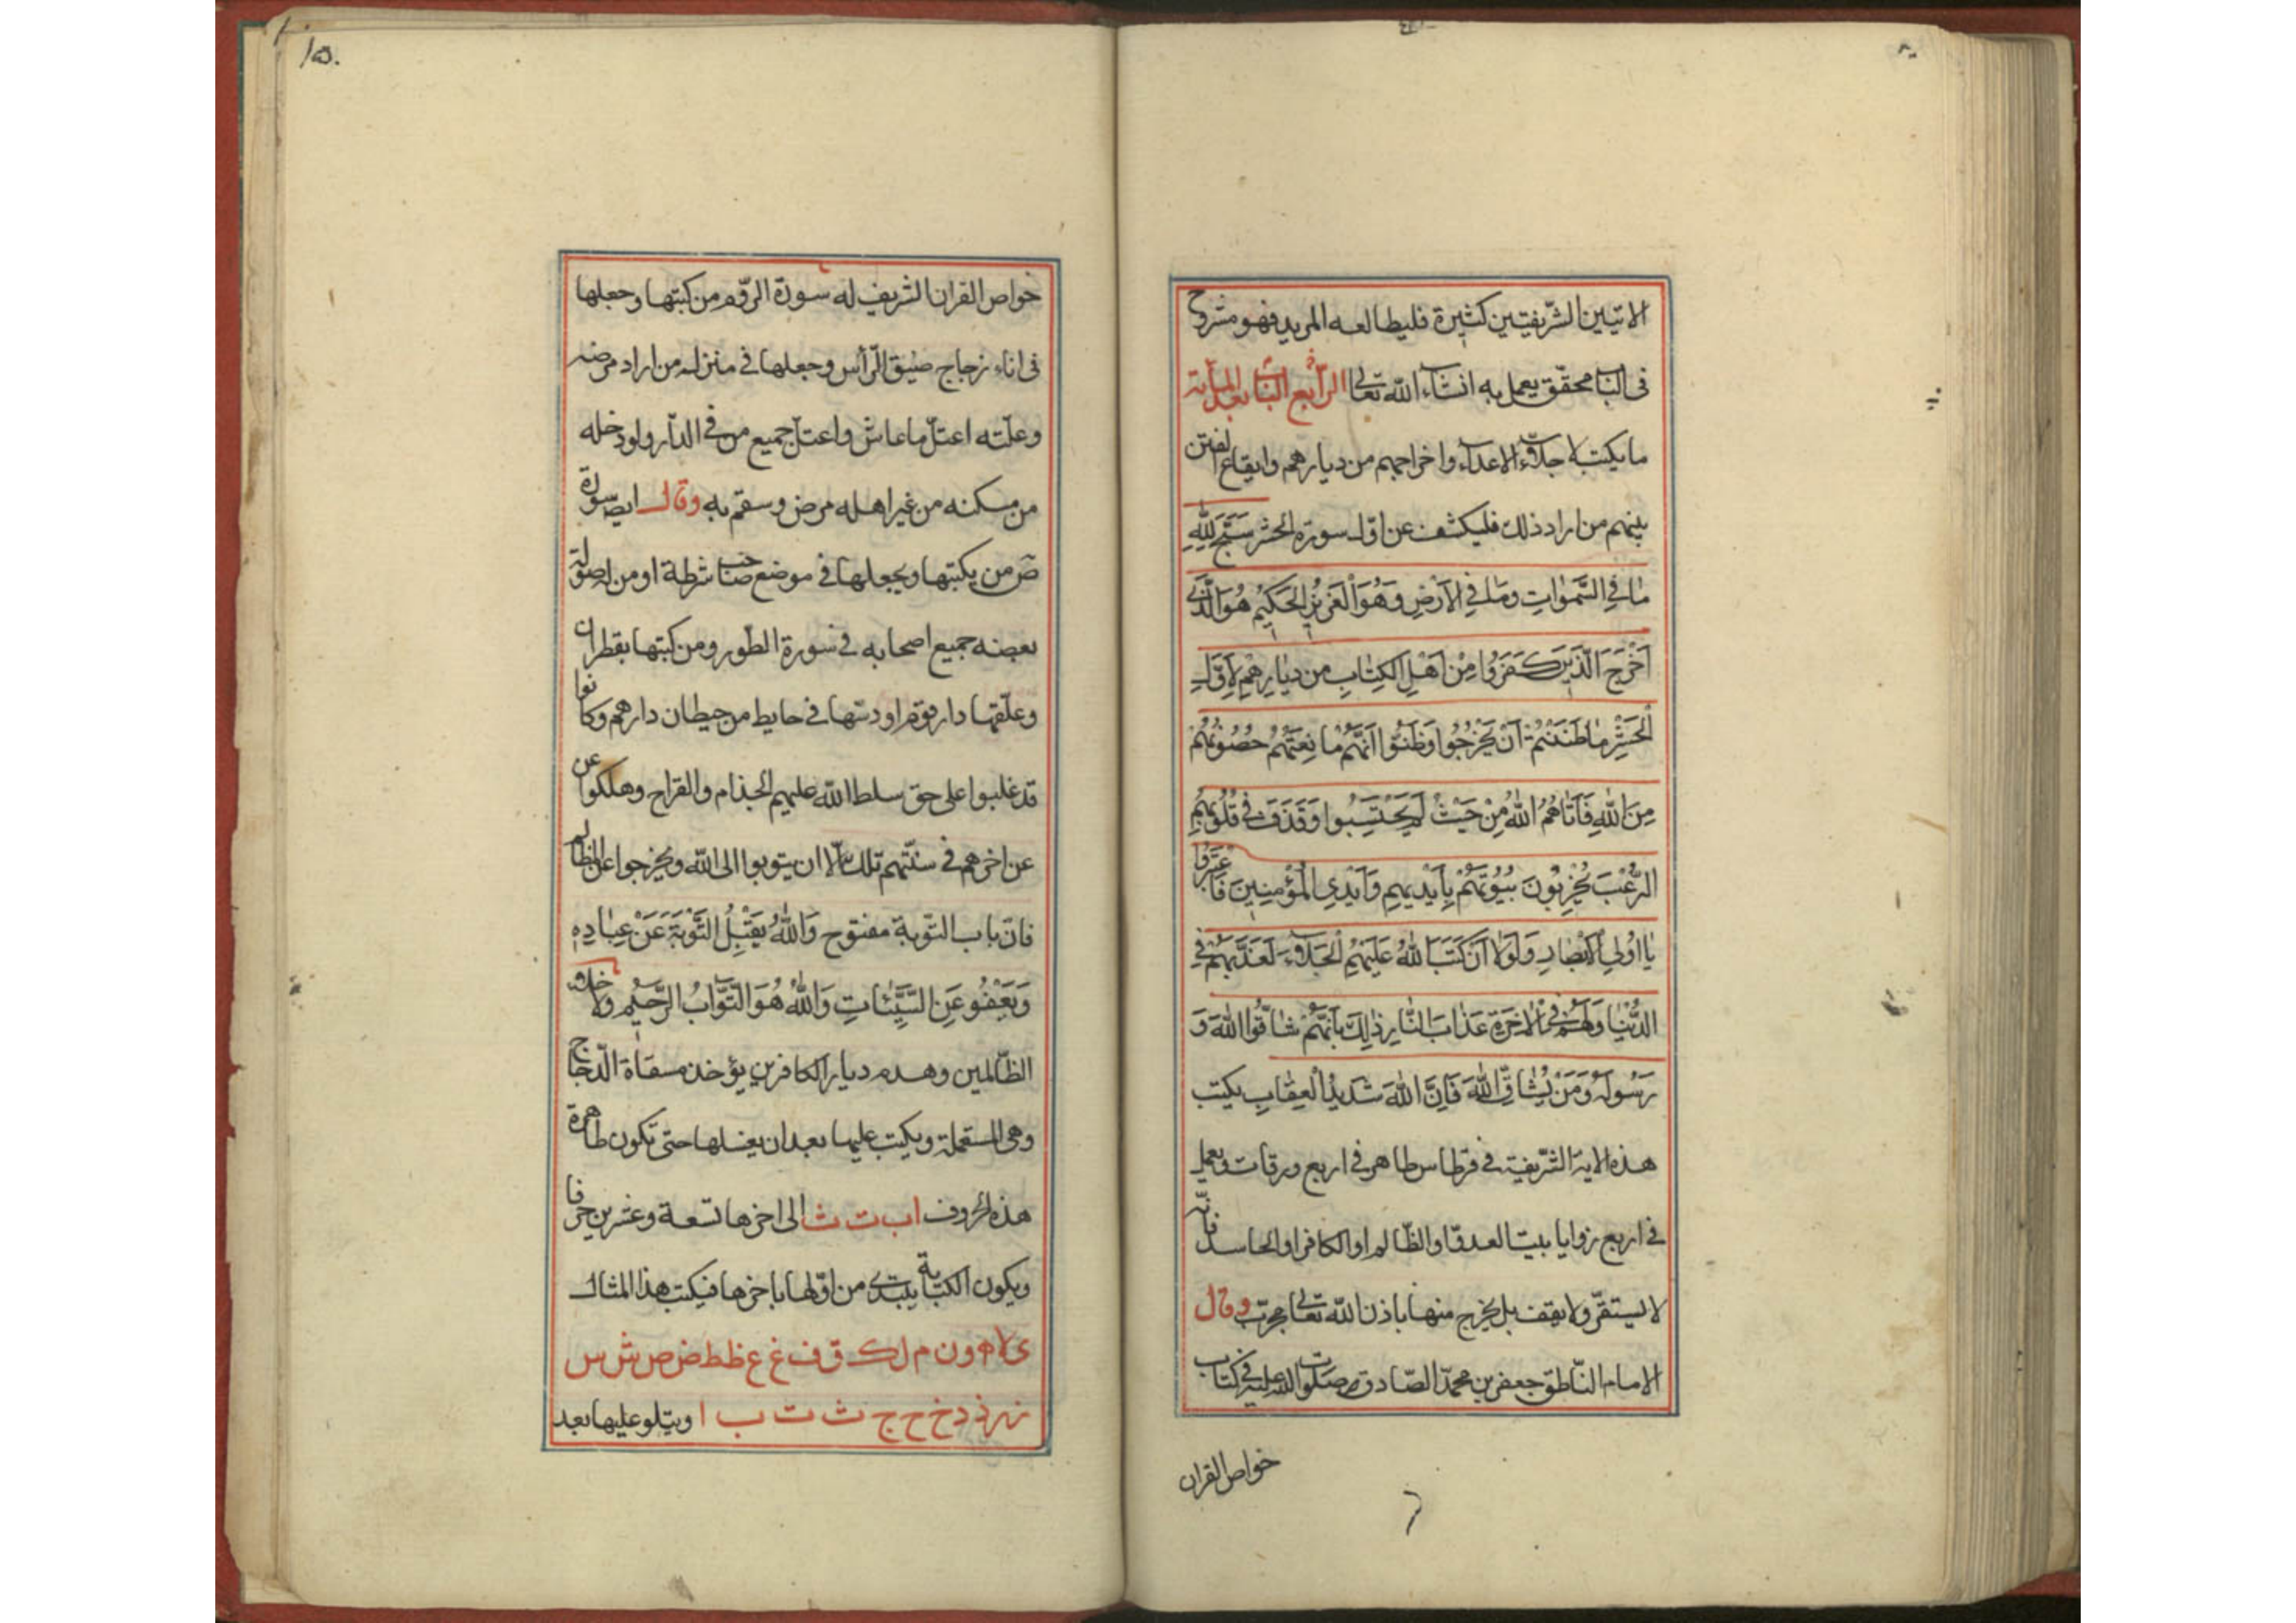 الاتيين الشّريفيتين كثيرة فليطالعه المريد فهو مشروح
فى الباب محقّق يعمل به انشاء الله تعالى الباب الرّابع بعد المأية
ما يكتب لاجل جلاء الاعداء واخراجهم من ديارهم وايقاع الفتن
بينهم من اراد ذلك فليكشف عن اوّل سورة الحشر سَبَّحَ لِلّٰهِ
مٰا فِى السَّمٰوٰاتِ وَمٰا فِى الاَرْضِ وَهُوَ الْعَزِيزُ الْحَكِيْمُ هُوَ الَّذِى
اَخْرَجَ الَّذِيْنَ كَفَرُوا مِنْ اَهْلِ الكِتٰابِ من دِيٰارِهِمْ لِاَوَّلِ
الْحَشْرِ مٰا ظَنَنْتُمْ اَنْ يَخْرُجُوا وَظَنُّوا اَنَّهُمْ مٰا نِعَتُهُمْ حُصُونُهُمْ
مِنَ اللّٰهِ فَاَتٰاهُمُ اللّٰهُ مِنْ حَيْثُ لَمْ يَحْتَسِبُوا وَقَذَفَ فِى قُلُوبِهِمُ
الرُّعْبَ يُخْرِبُونَ بُيُوتَهُمْ بِاَيْدِيهِمِ وَاَيْدِى الْمُؤْمِنِيْنَ فَاعْتَبِرُوا
يٰا اُولِى الْاَبْصٰارِ وَلَوْلٰا اَنْ كَتَبَ اللّٰهُ عَلَيْهِمُ الْجَلٰاءَ لَعَذَّبَهُمْ فِى
الدُّنْيٰا وَلَهُمْ فِى الْاٰخِرَةِ عَذٰابَ النّٰارِ ذٰلِكَ بِاَنَّهُمْ شٰاقُّوا اللّٰهَ وَ
رَسُولَهُ وَمَنْ يُشٰاقِّ اللّٰهَ فَاِنَّ اللّٰهَ شَدِيدُ الْعِقٰابِ يكتب
هذه الاية الشّريفة فى قرطاس طاهر فى اربع ورقات ويعمل
فى اربع زوايا بيت العدوّ او الظّالم او الكافر او الحاسد فانّه
لا يستقرّ ولا يقف بل يخرج منها باذن الله تعالى مجرّب وقال
الامام النّاطق جعفر بن محمّد الصّادق صلوات الله عليه فى كتاب
خواص القران
خواص القران الشريف له سورة الرّوم من كتبها وجعلها
فى اناء زجاج ضيق الرّأس وجعلها فى منزل من اراد مرضه
وعلّته اعتلّ ما عاش واعتلّ جميع من فى الدّار ولو دخله
من مسكنه من غير اهله مرض وسقم به وقال ايض سورة
صۤ من يكتبها ويجعلها فى موضع صاحب شرطة او من له صولة
بعضه جميع اصحابه فى سورة الطّور ومن كتبها بقطران
وعلّقها دار قوم او دسّها فى حايط من حيطان دارهم وكانوا
قد غلبوا على حق سلط الله عليهم الجذام والقراح وهلكوا عن
عن اخرهم فى سنتهم تلك الّا ان يتوبوا الى الله ويخرجوا عن المظالم
فانّ باب التّوبة مفتوح وَاللّٰهُ يَقْبَلُ التَّوْبَةَ عَنْ عِبٰادِهِ
وَيَعْفُو عَنِ السَّيِّئٰاتِ وَاللّٰهُ هُوَ التَّوّٰابُ الرَّحِيْمُ ولاخلاء
الظّالمين وهدم ديار الكافرين يؤخذ مسقاة الدّجاج
وهى المستعملة ويكتب عليها بعد ان يغسلها حتى تكون طاهرة
هذه الحروف ا ب ت ث الى اخرها تسعة وعشرين حرفا
ويكون الكتابة يبتدئ من اوّلها باخرها فيكتب هذا المثال
ى لا ه و ن م ل ك ق ف غ ع ظ ط ض ص ش س
ز ر ذ د خ ح ج ث ت ب ا ويتلو عليها بعد